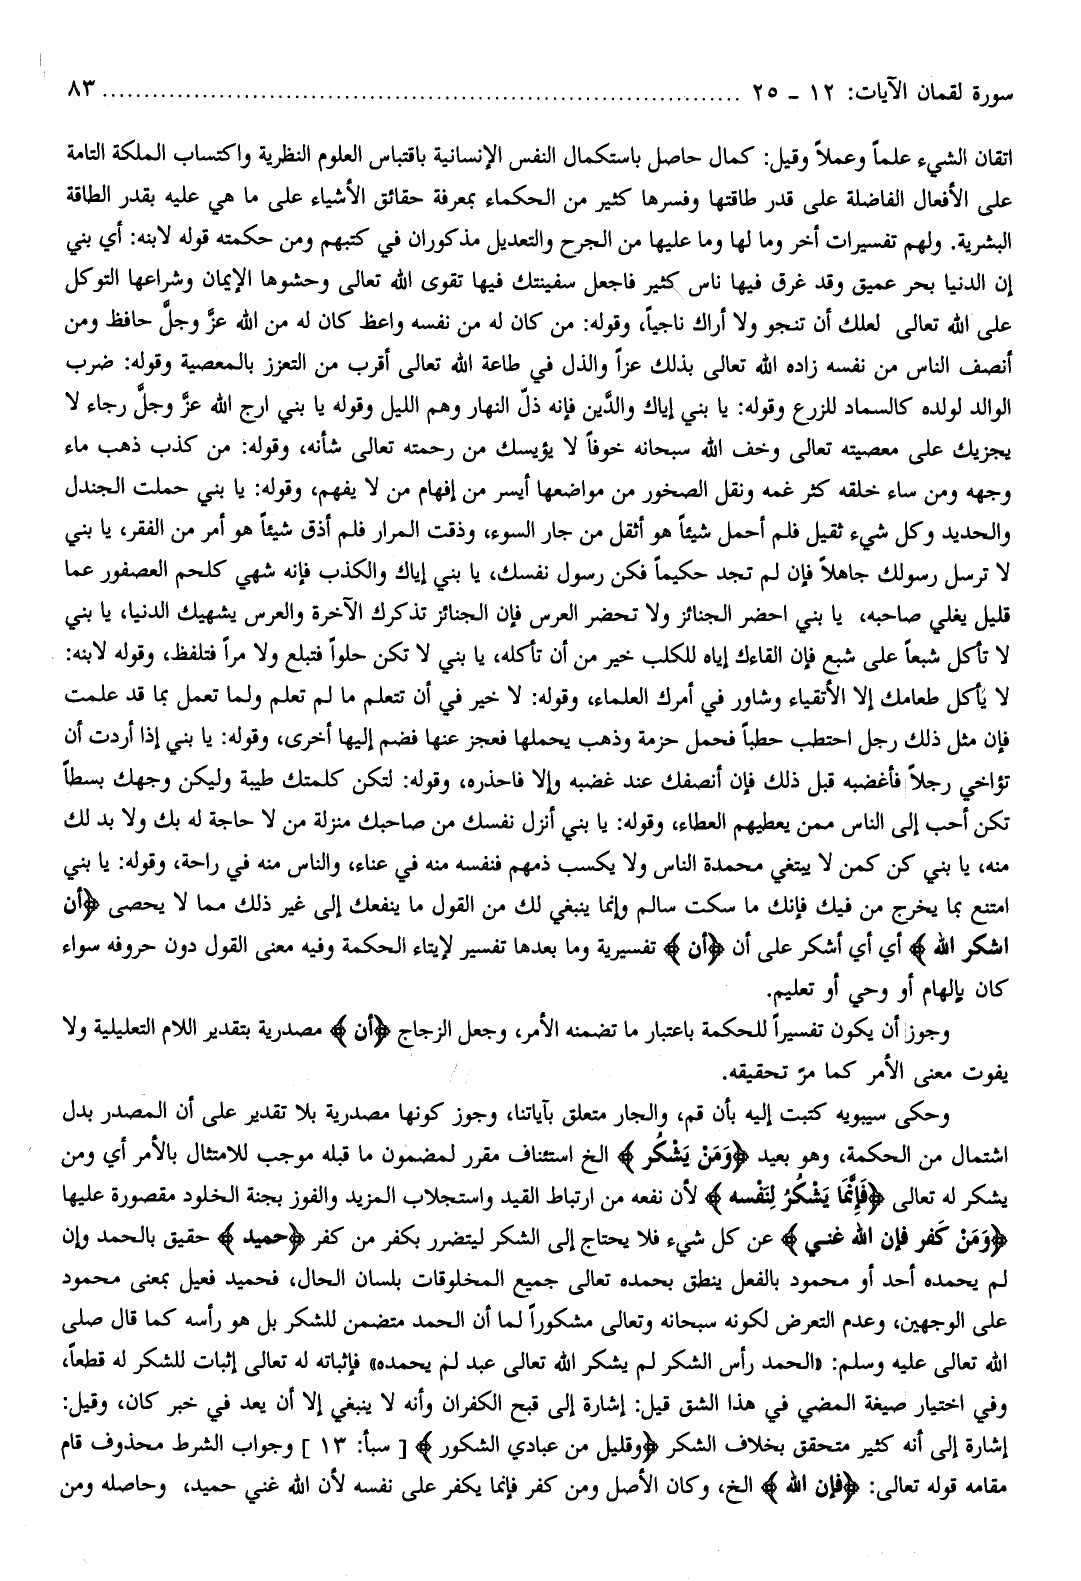 سورة لقمان الآيات: ١٢ ـ ٢٥ ........................................................................... ٨٣
اتقان الشيء علماً وعملاً وقيل: كمال حاصل باستكمال النفس الإنسانية باقتباس العلوم النظرية واكتساب الملكة التامة
على الأفعال الفاضلة على قدر طاقتها وفسرها كثير من الحكماء بمعرفة حقائق الأشياء على ما هي عليه بقدر الطاقة
البشرية. ولهم تفسيرات أخر وما لها وما عليها من الجرح والتعديل مذكوران في كتبهم ومن حكمته قوله لابنه: أي بني
إن الدنيا بحر عميق وقد غرق فيها ناس كثير فاجعل سفينتك فيها تقوى الله تعالى وحشوها الإيمان وشراعها التوكل
على الله تعالى لعلك أن تنجو ولا أراك ناجياً، وقوله: من كان له من نفسه واعظ كان له من الله عزَّ وجلَّ حافظ ومن
أنصف الناس من نفسه زاده الله تعالى بذلك عزاً والذل في طاعة الله تعالى أقرب من التعزز بالمعصية وقوله: ضرب
الوالد لولده كالسماد للزرع وقوله: يا بني إياك والدَّين فإنه ذلّ النهار وهم الليل وقوله يا بني ارج الله عزَّ وجلَّ رجاء لا
يجزيك على معصيته تعالى وخف الله سبحانه خوفاً لا يؤيسك من رحمته تعالى شأنه، وقوله: من كذب ذهب ماء
وجهه ومن ساء خلقه كثر غمه ونقل الصخور من مواضعها أيسر من إفهام من لا يفهم، وقوله: يا بني حملت الجندل
والحديد وكل شيء ثقيل فلم أحمل شيئاً هو أثقل من جار السوء، وذقت المرار فلم أذق شيئاً هو أمر من الفقر، يا بني
لا ترسل رسولك جاهلاً فإن لم تجد حكيماً فكن رسول نفسك، يا بني إياك والكذب فإنه شهي كلحم العصفور عما
قليل يغلي صاحبه، يا بني احضر الجنائز ولا تحضر العرس فإن الجنائز تذكرك الآخرة والعرس يشهيك الدنيا، يا بني
لا تأكل شبعاً على شبع فإن القاءك إياه للكلب خير من أن تأكله، يا بني لا تكن حلواً فتبلع ولا مراً فتلفظ، وقوله لابنه:
لا يأكل طعامك إلا الأتقياء وشاور في أمرك العلماء، وقوله: لا خير في أن تتعلم ما لم تعلم ولما تعمل بما قد علمت
فإن مثل ذلك رجل احتطب حطباً فحمل حزمة وذهب يحملها فعجز عنها فضم إليها أخرى، وقوله: يا بني إذا أردت أن
تؤاخي رجلاً فأغضبه قبل ذلك فإن أنصفك عند غضبه وإلا فاحذره، وقوله: لتكن كلمتك طيبة وليكن وجهك بسطاً
تكن أحب إلى الناس ممن يعطيهم العطاء، وقوله: يا بني أنزل نفسك من صاحبك منزلة من لا حاجة له بك ولا بد لك
منه، يا بني كن كمن لا يبتغي محمدة الناس ولا يكسب ذمهم فنفسه منه في عناء، والناس منه في راحة، وقوله: يا بني
امتنع بما يخرج من فيك فإنك ما سكت سالم وإنما ينبغي لك من القول ما ينفعك إلى غير ذلك مما لا يحصى ﴿أن
اشكر الله﴾ أي أي أشكر على أن ﴿أن﴾ تفسيرية وما بعدها تفسير لإيتاء الحكمة وفيه معنى القول دون حروفه سواء
كان بإلهام أو وحي أو تعليم.
وجوز أن يكون تفسيراً للحكمة باعتبار ما تضمنه الأمر، وجعل الزجاج ﴿أن﴾ مصدرية بتقدير اللام التعليلية ولا
يفوت معنى الأمر كما مرّ تحقيقه.
وحكى سيبويه كتبت إليه بأن قم، والجار متعلق بآياتنا، وجوز كونها مصدرية بلا تقدير على أن المصدر بدل
اشتمال من الحكمة، وهو بعيد ﴿وَمَنْ يَشْكُر﴾ الخ استئناف مقرر لمضمون ما قبله موجب للامتثال بالأمر أي ومن
يشكر له تعالى ﴿فَإِنَّمَا يَشْكُرُ لِنَفْسه﴾ لأن نفعه من ارتباط القيد واستجلاب المزيد والفوز بجنة الخلود مقصورة عليها
﴿وَمَنْ كَفر فإن الله غني﴾ عن كل شيء فلا يحتاج إلى الشكر ليتضرر بكفر من كفر ﴿حميد﴾ حقيق بالحمد وإن
لم يحمده أحد أو محمود بالفعل ينطق بحمده تعالى جميع المخلوقات بلسان الحال، فحميد فعيل بمعنى محمود
على الوجهين، وعدم التعرض لكونه سبحانه وتعالى مشكوراً لما أن الحمد متضمن للشكر بل هو رأسه كما قال صلى
الله تعالى عليه وسلم: «الحمد رأس الشكر لم يشكر الله تعالى عبد لم يحمده» فإثباته له تعالى إثبات للشكر له قطعاً،
وفي اختيار صيغة المضي في هذا الشق قيل: إشارة إلى قبح الكفران وأنه لا ينبغي إلا أن يعد في خبر كان، وقيل:
إشارة إلى أنه كثير متحقق بخلاف الشكر ﴿وقليل من عبادي الشكور﴾ [ سبأ: ١٣ ] وجواب الشرط محذوف قام
مقامه قوله تعالى: ﴿فإن الله﴾ الخ، وكان الأصل ومن كفر فإنما يكفر على نفسه لأن الله غني حميد، وحاصله ومن